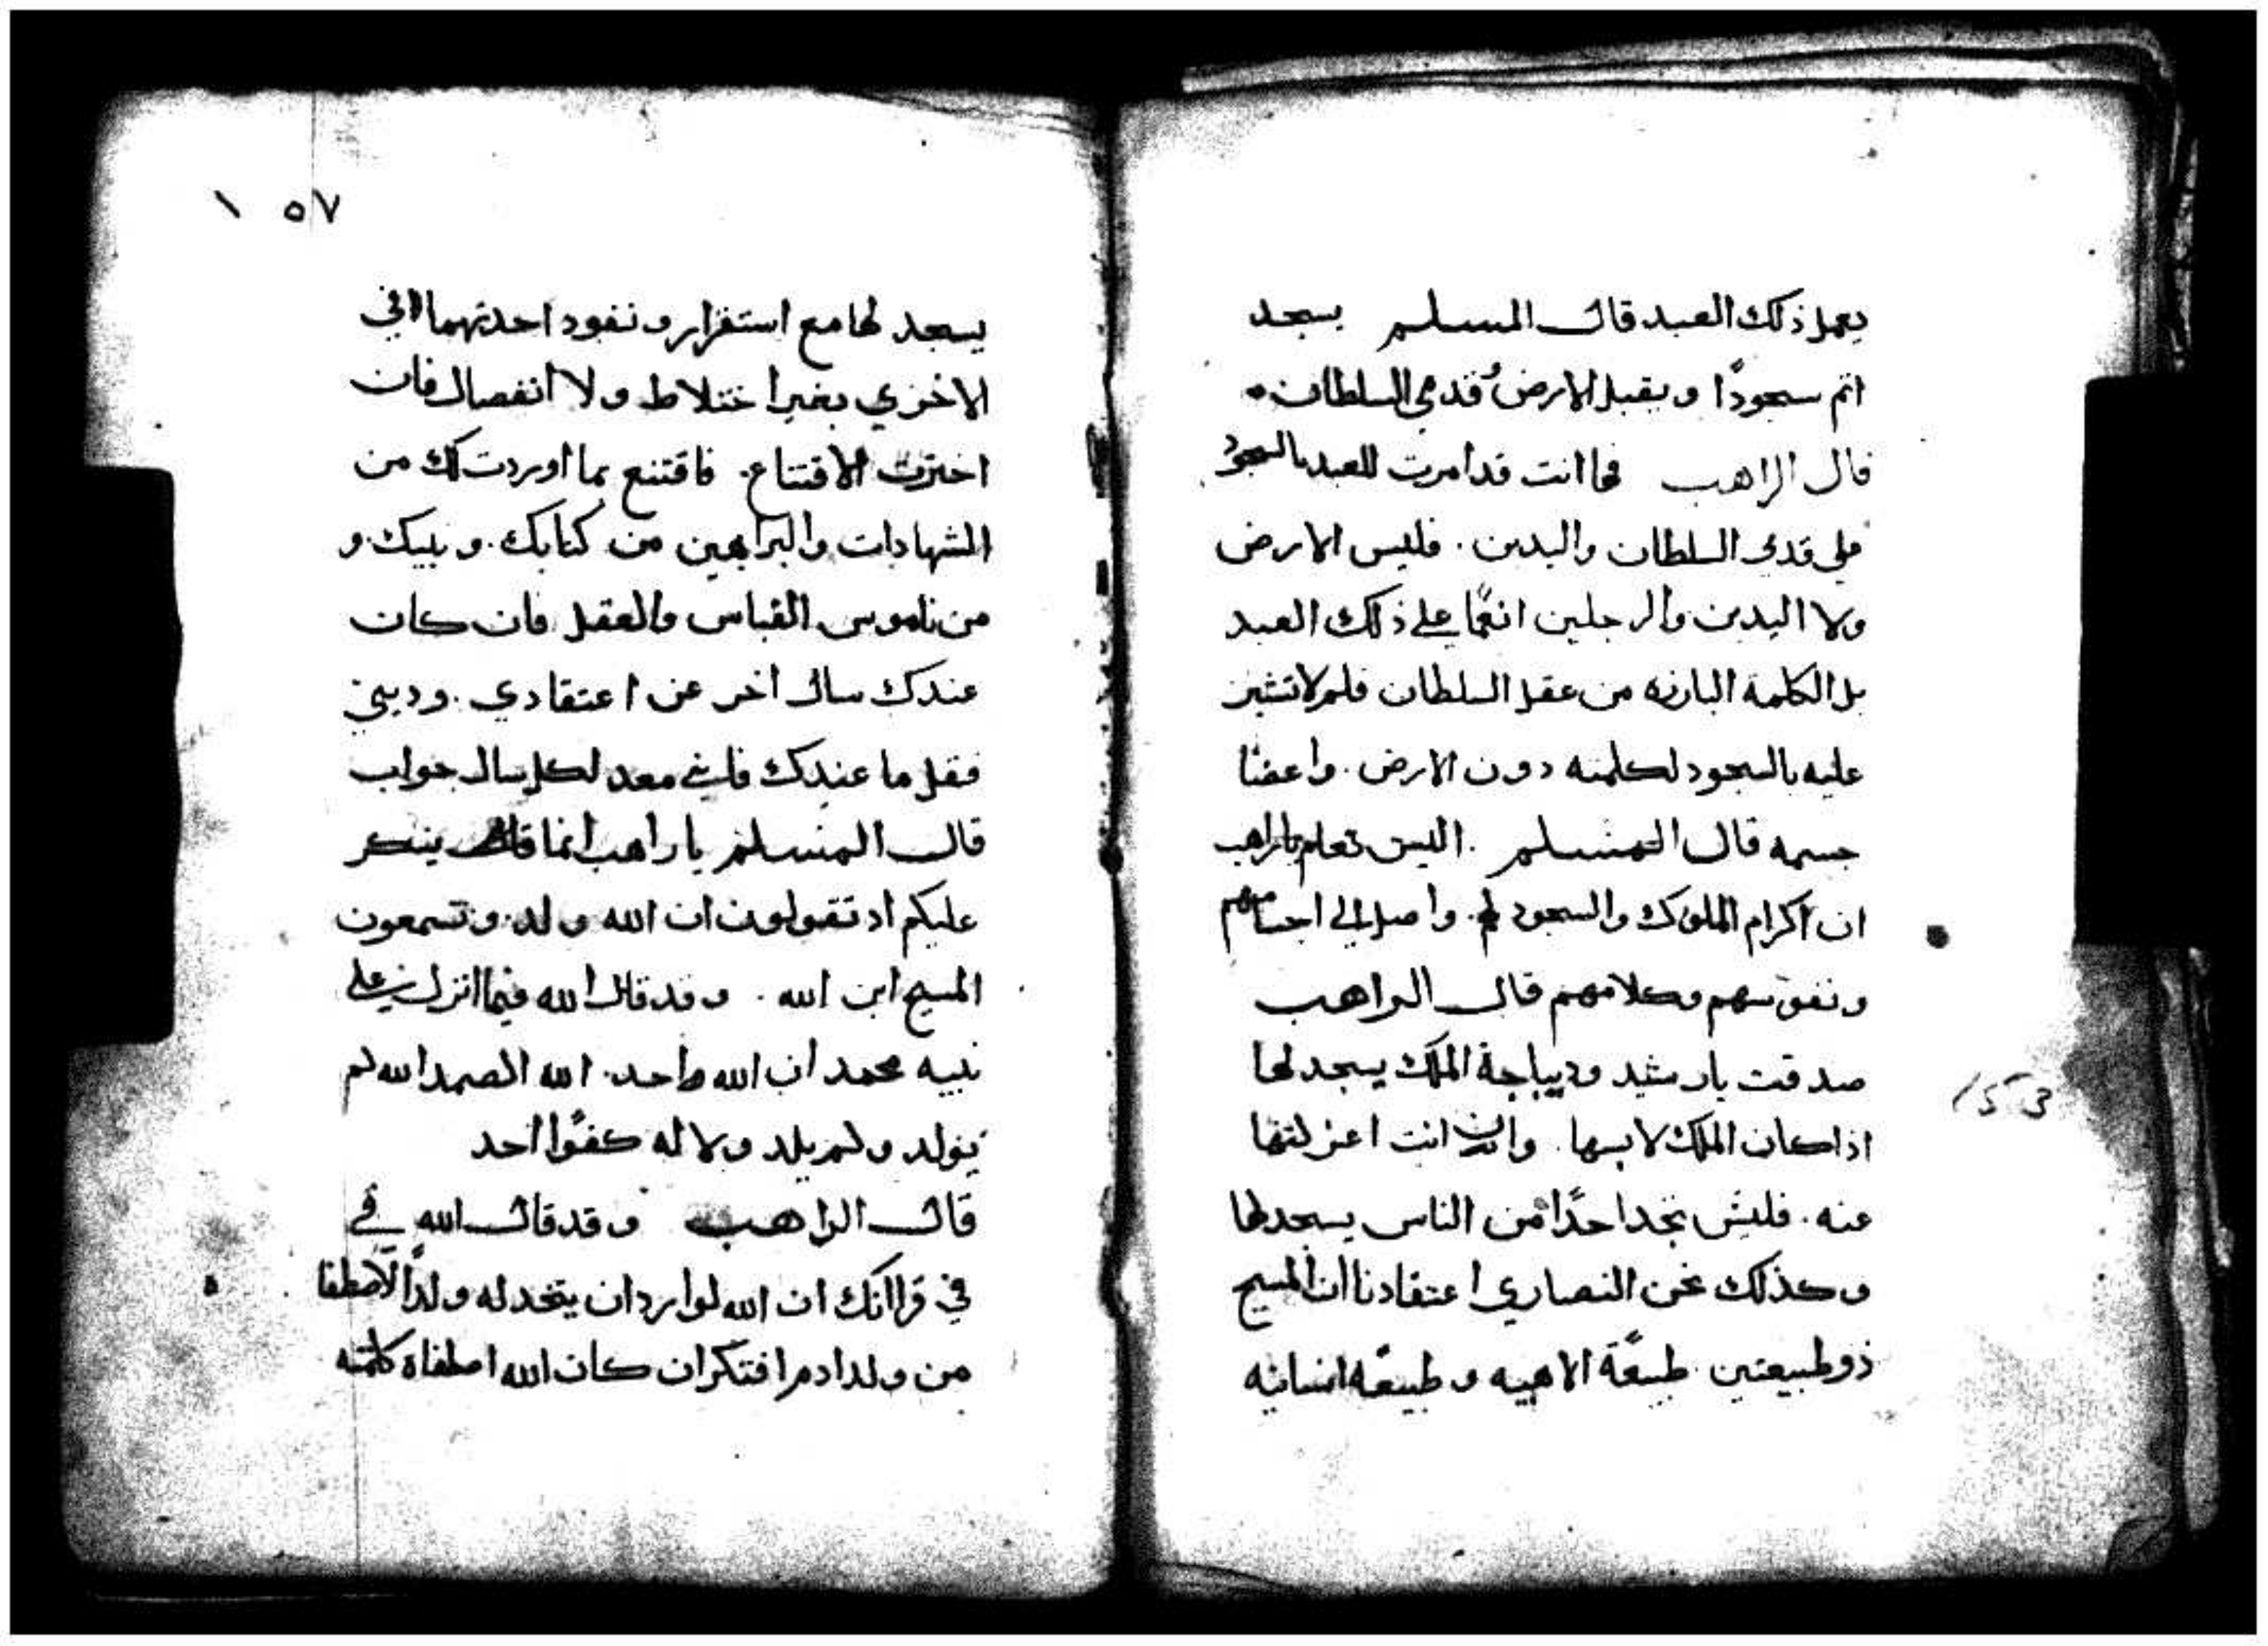 يعمل ذلك العبد قال المسلم يسجد
اتم سجودًا ويقبل الارض قدمي السلطان
قال الراهب فما انت قد امرت للعبد بالسجود
على قدمي السلطان واليدين. فليس الارض
ولا اليدين والرجلين انعما على ذلك العبد
بل الكلمة البارزه من عقل السلطان فلم لا تشير
عليه بالسجود لكلمته دون الارض. واعضا
جسمه قال المسلم. اليس تعلم يا راهب
ان اكرام الملوك والسجود لهم. واصل الي اجسامهم
ونفوسهم وكلامهم قال الراهب
صدقت يا رشيد وديباجة الملك يسجد لها
اذا كان الملك لابسها. وان انت اعزلتها
عنه. فليس تجد احدًا من الناس يسجد لها
وكذلك نحن النصاري اعتقادنا ان المسيح
ذو طبيعتين. طبيعًة الاهيه وطبيعًه انسانيه
١٥٧
يسجد لها مع استقرار ونفود احدتهما في
الاخري بغير اختلاط ولا انفصال فان
اخترت الاقتناع. فاقتنع بما اوردت لك من
الشهادات والبراهين من كتابك. ونبيك. و
من ناموس القياس والعقل فان كان
عندك سال اخر عن اعتقادي. وديني
فقل ما عندك فاني معد لكل سال جواب
قال المسلم يا راهب انما ينكر
عليكم اد تقولون ان الله ولد. وتسمعون
المسيح ابن الله. وقد قال الله فيما انزل علي
نبيه محمد ان الله واحد. الله الصمد الله لم
يولد ولم يلد ولا له كفوًا احد
قال الراهب وقد قال الله في
في قراانك ان الله لو ارد ان يتخد له ولدًا لاصطفا
من ولد ادم افتكر ان كان الله اصطفاه كلمته